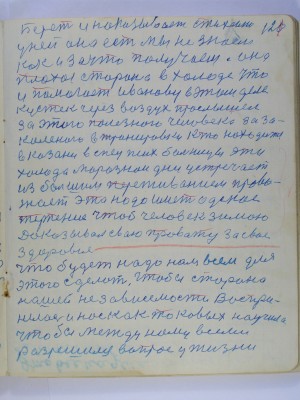 берет и показывает стихами 128
у ней она ест мы не знаем
как и за что получаем. она
плохая сторона в холоде это
и помогает иванову в этом деле
кустик через воздух просившего
за этого полезного человека за за-
каленого в тренировки кто находится
в казани в спец псих больницы эти
холода морозной дни встречает
из большим переживанием прово-
жает это надо иметь такое
терпение чтоб человек зимою
доказывал свою правату за свое
здоровье
что будет надо нам всем для
этого сделать, чтобы сторона
нашей независемости воспри-
няла и нас как таковых научила
чтобы между нами всеми
разрешила вопрос у жизни